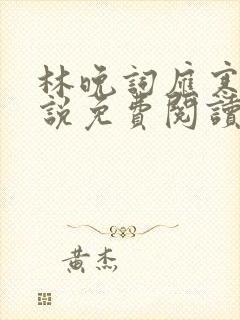 林晚詞雁寒
說免費閱讀
黃杰